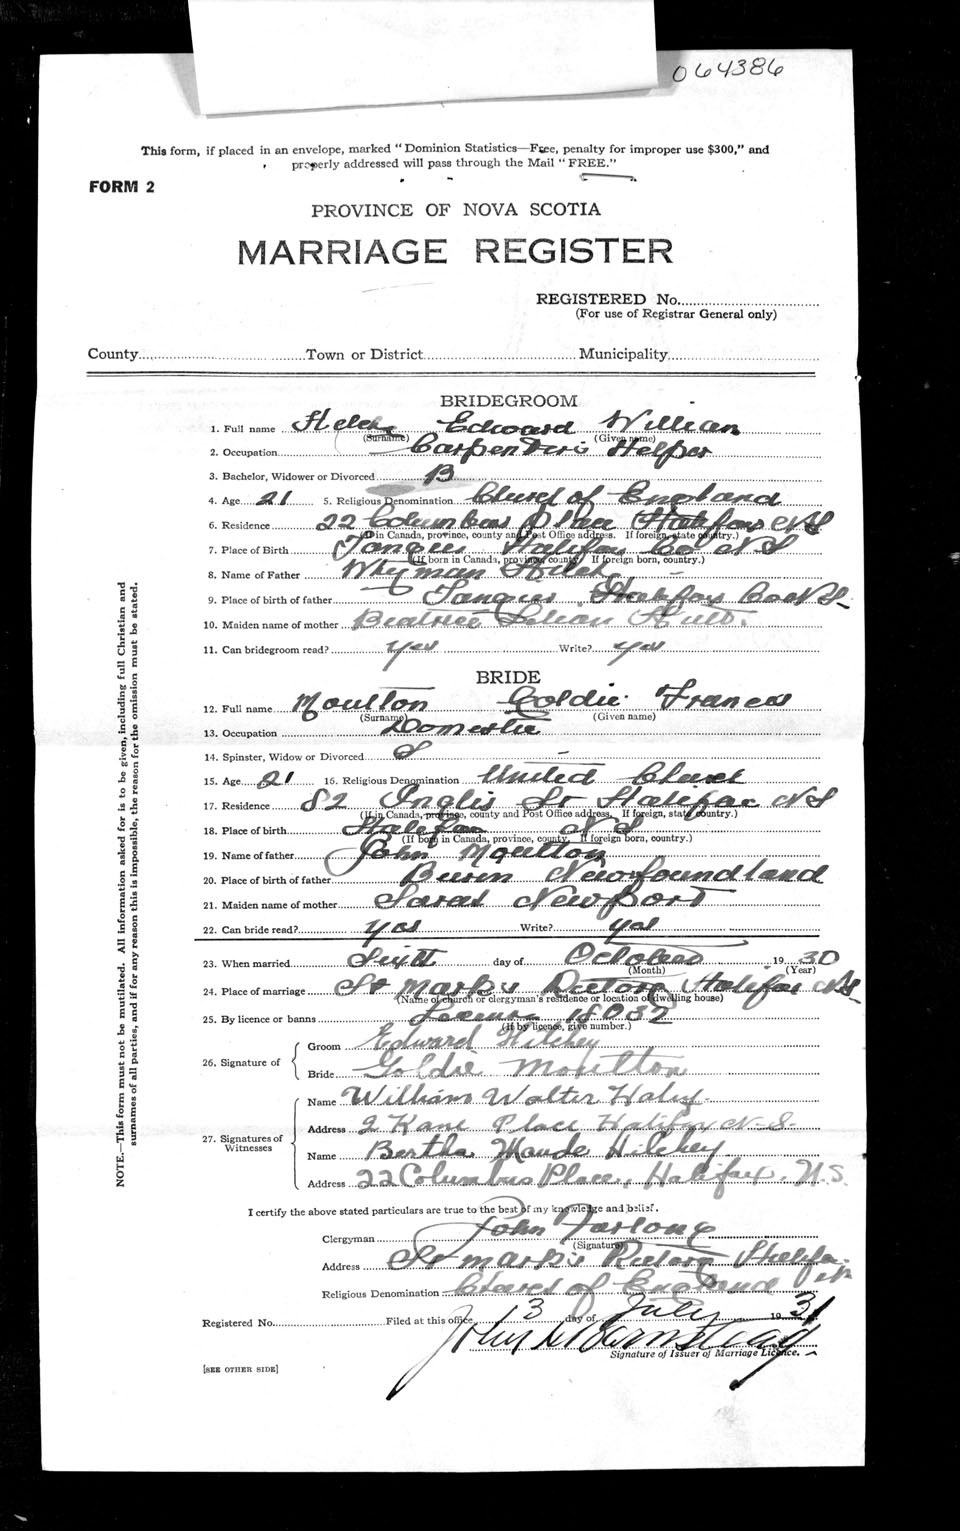 064386
This form, if placed in an envelope, marked "Dominion Statistics—Free, penalty for improper use $300," and
properly addressed will pass through the Mail "FREE."
FORM 2
PROVINCE OF NOVA SCOTIA
MARRIAGE REGISTER
REGISTERED No.
(For use of Registrar General only)
County Town or District Municipality
BRIDEGROOM
1. Full name Edward William
(Surname) (Given name)
2. Occupation Carpenters Helper
3. Bachelor, Widower or Divorced B
4. Age 21 5. Religious Denomination Church of England
6. Residence 22 Columbus Place Halifax NS
(If in Canada, province, county and Post Office address. If foreign, state country.)
7. Place of Birth Tangier Halifax Co NS
(If born in Canada, province, county. If foreign born, country.)
8. Name of Father
9. Place of birth of father Tangier Halifax Co NS
10. Maiden name of mother Beatrice Lilian
11. Can bridegroom read? yes Write? yes
BRIDE
12. Full name Moulton Goldie Frances
(Surname) (Given name)
13. Occupation Domestic
14. Spinster, Widow or Divorced S
15. Age 21 16. Religious Denomination United Church
17. Residence 82 Inglis St Halifax NS
(If in Canada, province, county and Post Office address. If foreign, state country.)
18. Place of birth Halifax NS
(If born in Canada, province, county. If foreign born, country.)
19. Name of father John Moulton
20. Place of birth of father Burin Newfoundland
21. Maiden name of mother Sarah Newport
22. Can bride read? yes Write? yes
23. When married day of October 1930
(Month) (Year)
24. Place of marriage St Marks Rectory Halifax NS
(Name of church or clergyman's residence or location of dwelling house)
25. By licence or banns License 18032
(If by licence, give number.)
26. Signature of
Groom Edward Hilchey
Bride Goldie Moulton
27. Signatures of Witnesses
Name William Walter
Address 2 Kane Place Halifax N.S.
Name Bertha Maude Hilchey
Address 22 Columbus Place, Halifax, N.S.
I certify the above stated particulars are true to the best of my knowledge and belief.
Clergyman John Furlong
(Signature)
Address St Marks Rectory Halifax
Religious Denomination Church of England
Registered No. Filed at this office 13 day of July 1931
Signature of Issuer of Marriage Licence.
[SEE OTHER SIDE]
NOTE.—This form must not be mutilated. All information asked for is to be given, including full Christian and
surnames of all parties, and if for any reason this is impossible, the reason for the omission must be stated.